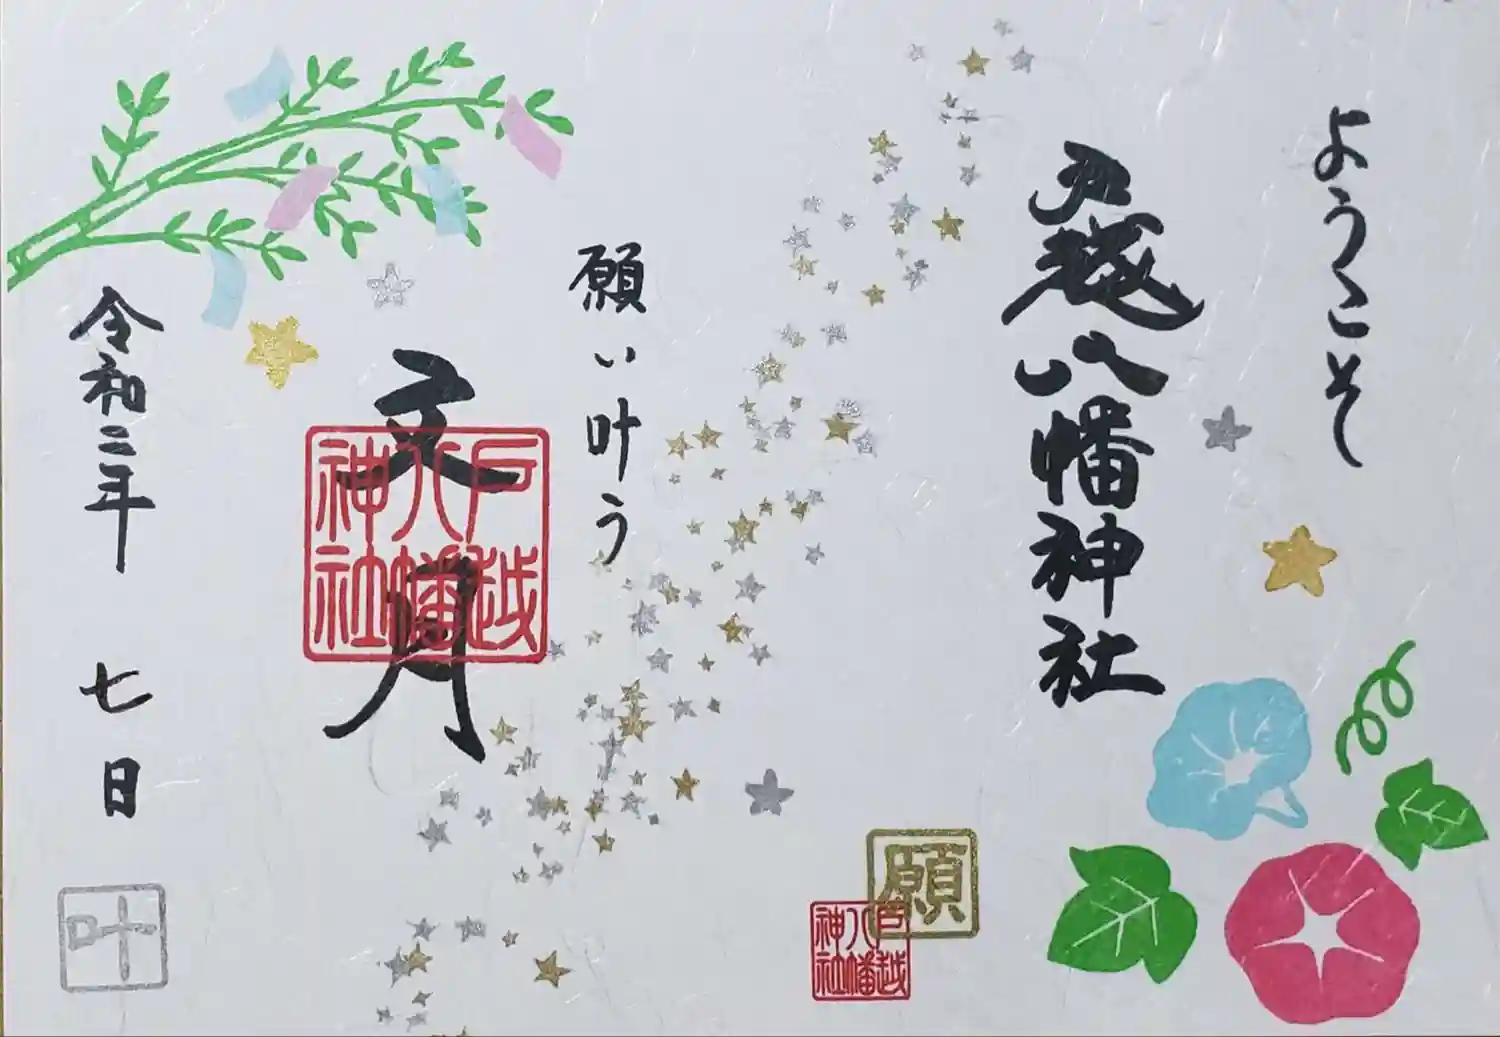 ようこそ
戸越八幡神社
願い叶う
文月
令和二年 七日
戸越
八幡
神社
願
戸越
八幡
神社
叶